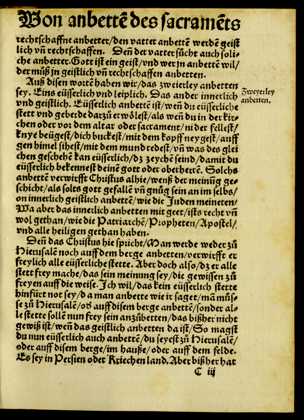 Von anbettē des sacramēts
rechtschaffne anbetter/den vatter anbettē werdē geist
lich vñ rechtschaffen. Deñ der vatter sücht auch soli-
che anbetter. Gott ist ein geist/vnd wer jn anbettē wil/
der müß jn geistlich vñ rechtschaffen anbetten.
Auß disen wortē haben wir/das zweierley anbetten
sey. Eins eüsserlich vnd leiplich. Das ander innerlich
vnd geistlich. Eüsserlich anbettē ist/weñ du eüsserliche
stett vnd geberde darzů erwölest/als weñ du in der kir
chen oder vor dem altar oder sacrament/nider fellest/
knye beügest/dich buckest/mit dem kopff neygest/auff
gen himel sihest/mit dem mund redest/vñ was des glei
chen geschehē kan eüsserlich/dz zeychē seind/damit du
eüsserlich bekennest deinē gott oder oberherrē. Solchs
anbettē verwirfft Christus alhie/weñß der meinūg ge
schicht/als solts gott gefallē vñ gnůg sein an im selbs/
on innerlich geistlich anbettē/wie die Juden meineten/
Wa aber das innerlich anbetten mit geet/ists recht vñ
wol gethan/wie die Patriarchē/Propheten/Apostel/
vnd alle heiligen gethan haben.
Deñ das Christus hie spricht/Man werde weder zů
Hierusalē noch auff dem berge anbetten/verwirfft er
freylich alle eüsserliche stette. Aber doch also/dz er alle
stett frey mache/das sein meinung sey/die gewissen zů
freyen auff die weise. Ich wil/das kein eüsserlich stette
hinfürt not sey/da man anbette wie jr saget/mā müse
zů Hierusalē/oder auff disem berge anbettē/sonder al
le stette sollē nun frey sein anzůbetten/das bißher nicht
gewiß ist/weñ das geistlich anbetten da ist/So magst
du auch eüsserlich anbettē/du seyest zů Hierusalē/
oder auff disem berge/im hauße/oder auff dem felde.
Es sey in Persien oder Kriechen land. Aber biß her hat
C iij
Zweyerley
anbetten.